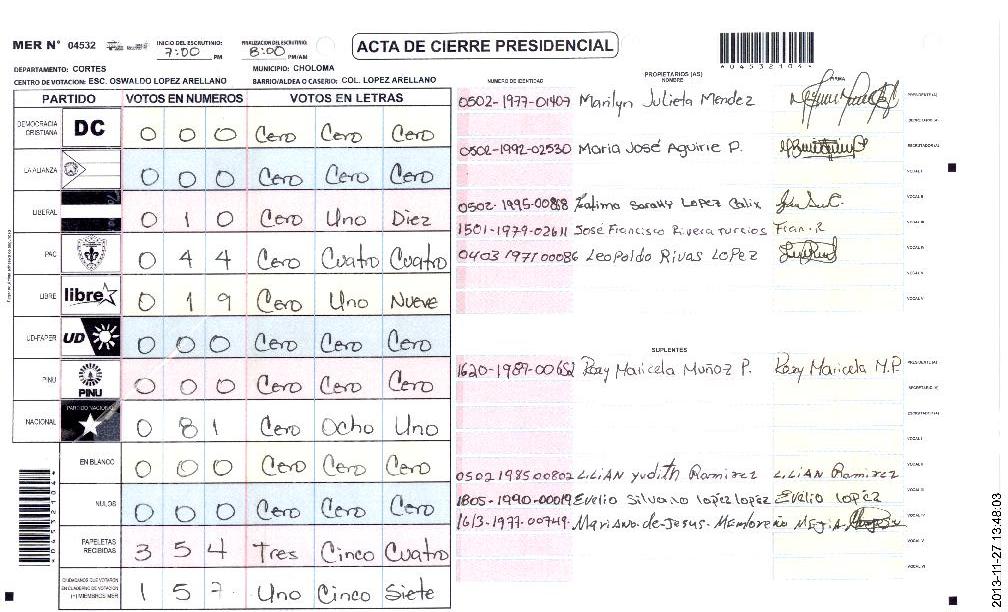 MER N° 04532 INICIO DEL ESCRUTINIO: 7:00 PM FINALIZACION DEL ESCRUTINIO: 8:00 PM/AM ACTA DE CIERRE PRESIDENCIAL
DEPARTAMENTO: CORTES MUNICIPIO: CHOLOMA
CENTRO DE VOTACION: ESC. OSWALDO LOPEZ ARELLANO BARRIO/ALDEA O CASERIO: COL. LOPEZ ARELLANO
PARTIDO VOTOS EN NUMEROS VOTOS EN LETRAS
DEMOCRACIA CRISTIANA DC 0 0 0 Cero Cero Cero
LA ALIANZA 0 0 0 Cero Cero Cero
LIBERAL 0 1 0 Cero Uno Diez
PAC 0 4 4 Cero Cuatro Cuatro
LIBRE libre 0 1 9 Cero Uno Nueve
UD-FAPER UD 0 0 0 Cero Cero Cero
PINU PINU 0 0 0 Cero Cero Cero
NACIONAL PARTIDO NACIONAL 0 8 1 Cero Ocho Uno
EN BLANCO 0 0 0 Cero Cero Cero
NULOS 0 0 0 Cero Cero Cero
PAPELETAS RECIBIDAS 3 5 4 Tres Cinco Cuatro
CIUDADANOS QUE VOTARON EN CUADERNO DE VOTACION (+) MIEMBROS MER 1 5 7 Uno Cinco Siete
NUMERO DE IDENTIDAD PROPIETARIOS (AS) NOMBRE FIRMA
0502-1977-01407 Marilyn Julieta Mendez PRESIDENTE (A)
SECRETARIO (A)
0502-1992-02530 Maria José Aguirre P. ESCRUTADOR (A)
VOCAL I
0502-1995-00868 Fatima Sarahy Lopez Calix VOCAL II
1501-1979-02611 José Francisco Rivera turcios Fran. R VOCAL III
0403 1971 00086 Leopoldo Rivas Lopez VOCAL IV
VOCAL V
SUPLENTES
1620-1989-00652 Rosy Maricela Muñoz P. Rosy Maricela M.P. PRESIDENTE (A)
SECRETARIO (A)
ESCRUTADOR (A)
VOCAL I
0502 1985 00802 LiLiAN yudith Ramirez LiLiAN Ramirez VOCAL II
1805-1990-00019 Evelio Silvano lopez lopez Evelio lopez VOCAL III
1613-1977-00749 Mariano-de-Jesus-Membreño Mejia VOCAL IV
VOCAL V
VOCAL VI
*04532104*
2013-11-27 13:48:03